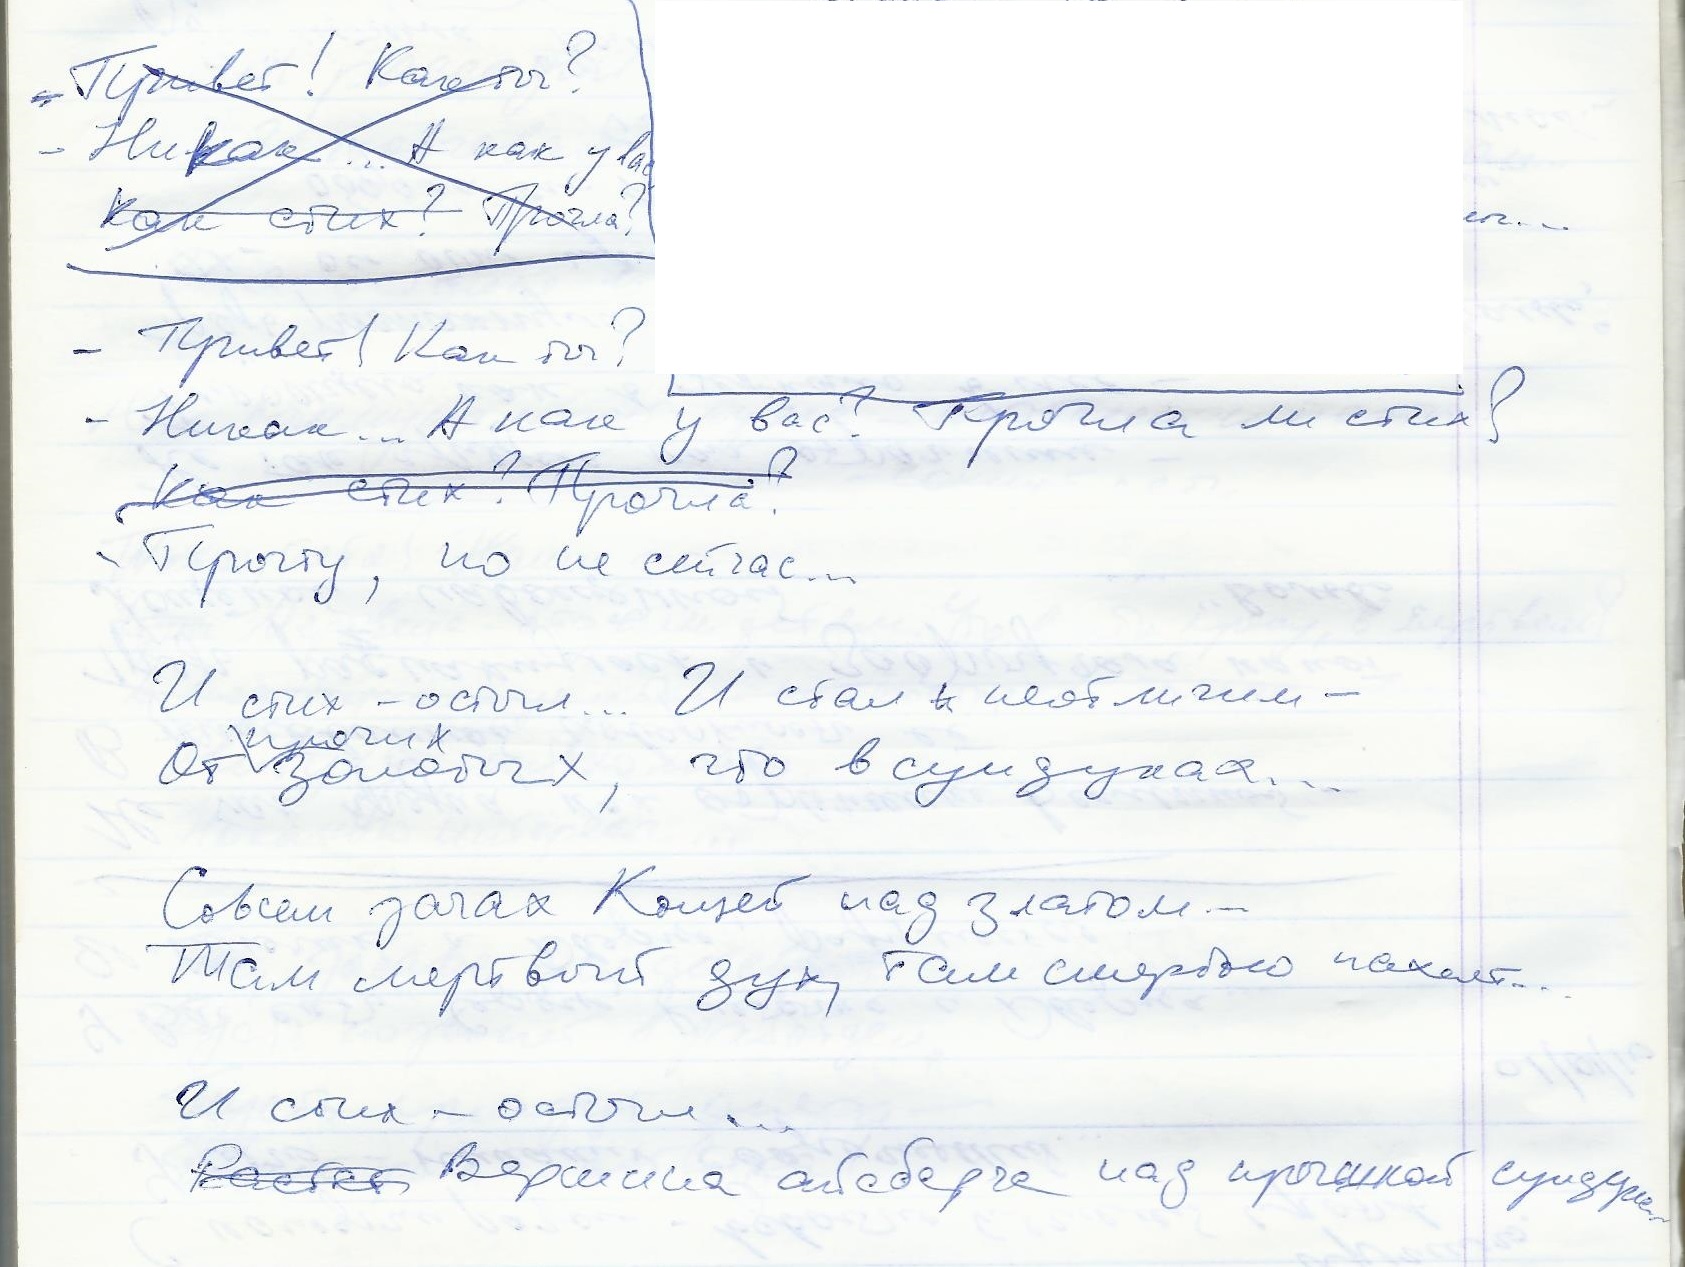 - Привет! Как ты?
- Никак... А как у вас
Как стих? Прочла?
- Привет! Как ты?
- Никак... А как у вас? Прочла ли стих?
Как стих? Прочла?
- Прочту, но не сейчас...
И стих - остыл... И стал неотличим -
прочих
От золотых, что в сундуках...
Совсем зачах Кощей над златом -
Там мертвый дух, там смертью пахнет...
И стих - остыл...
Растет Вершина айсберга над крышкой сундука...